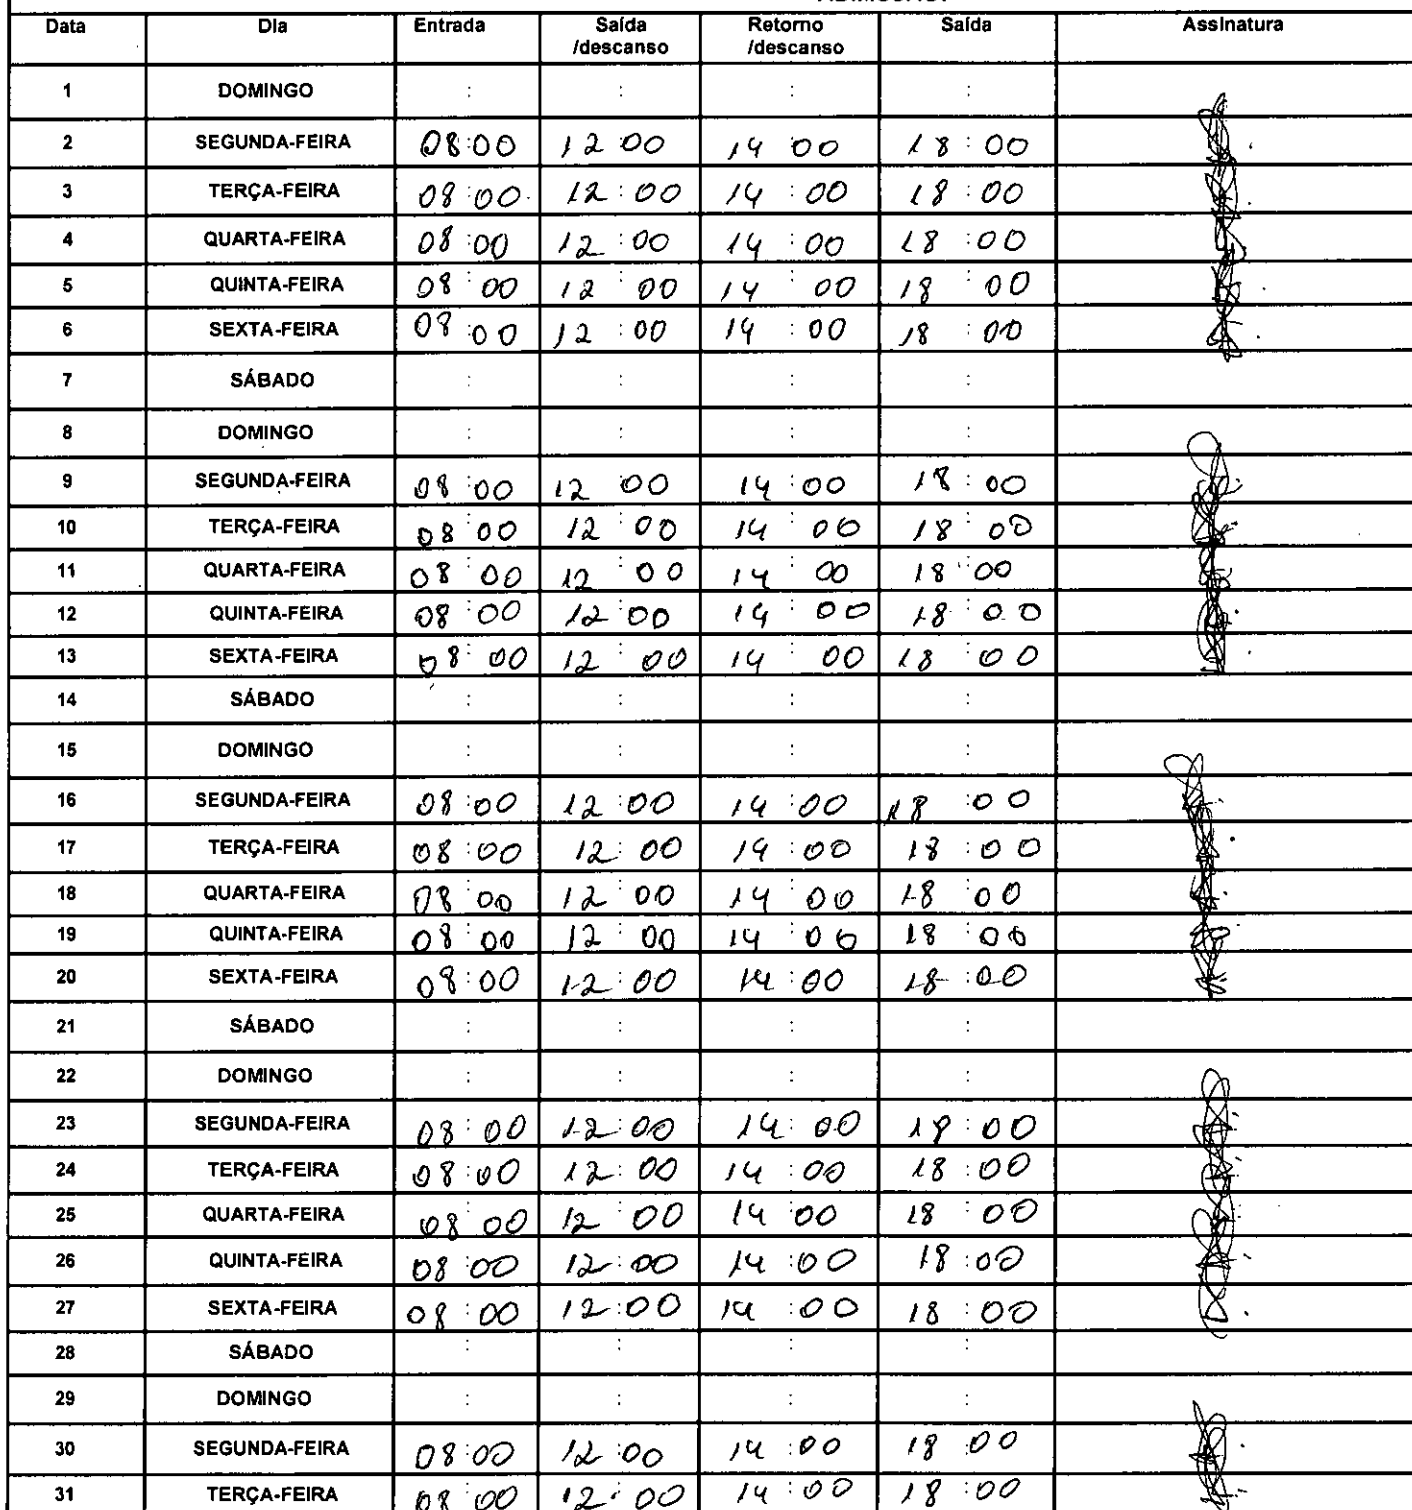 Data Dia Entrada Saída /descanso Retorno /descanso Saída Assinatura
1 DOMINGO : : : :
2 SEGUNDA-FEIRA 08:00 12:00 14:00 18:00
3 TERÇA-FEIRA 08:00 12:00 14:00 18:00
4 QUARTA-FEIRA 08:00 12:00 14:00 18:00
5 QUINTA-FEIRA 08:00 12:00 14:00 18:00
6 SEXTA-FEIRA 08:00 12:00 14:00 18:00
7 SÁBADO : : : :
8 DOMINGO : : : :
9 SEGUNDA-FEIRA 08:00 12:00 14:00 18:00
10 TERÇA-FEIRA 08:00 12:00 14:00 18:00
11 QUARTA-FEIRA 08:00 12:00 14:00 18:00
12 QUINTA-FEIRA 08:00 12:00 14:00 18:00
13 SEXTA-FEIRA 08:00 12:00 14:00 18:00
14 SÁBADO : : : :
15 DOMINGO : : : :
16 SEGUNDA-FEIRA 08:00 12:00 14:00 18:00
17 TERÇA-FEIRA 08:00 12:00 14:00 18:00
18 QUARTA-FEIRA 08:00 12:00 14:00 18:00
19 QUINTA-FEIRA 08:00 12:00 14:00 18:00
20 SEXTA-FEIRA 08:00 12:00 14:00 18:00
21 SÁBADO : : : :
22 DOMINGO : : : :
23 SEGUNDA-FEIRA 08:00 12:00 14:00 18:00
24 TERÇA-FEIRA 08:00 12:00 14:00 18:00
25 QUARTA-FEIRA 08:00 12:00 14:00 18:00
26 QUINTA-FEIRA 08:00 12:00 14:00 18:00
27 SEXTA-FEIRA 08:00 12:00 14:00 18:00
28 SÁBADO : : : :
29 DOMINGO : : : :
30 SEGUNDA-FEIRA 08:00 12:00 14:00 18:00
31 TERÇA-FEIRA 08:00 12:00 14:00 18:00